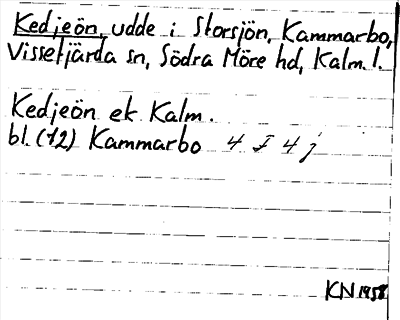 Kedjeön, udde i Storsjön, Kammarbo,
Vissefjärda sn, Södra Möre hd, Kalm. l.
Kedjeön ek Kalm.
bl. (12) Kammarbo 4 I 4 j
KN 1958